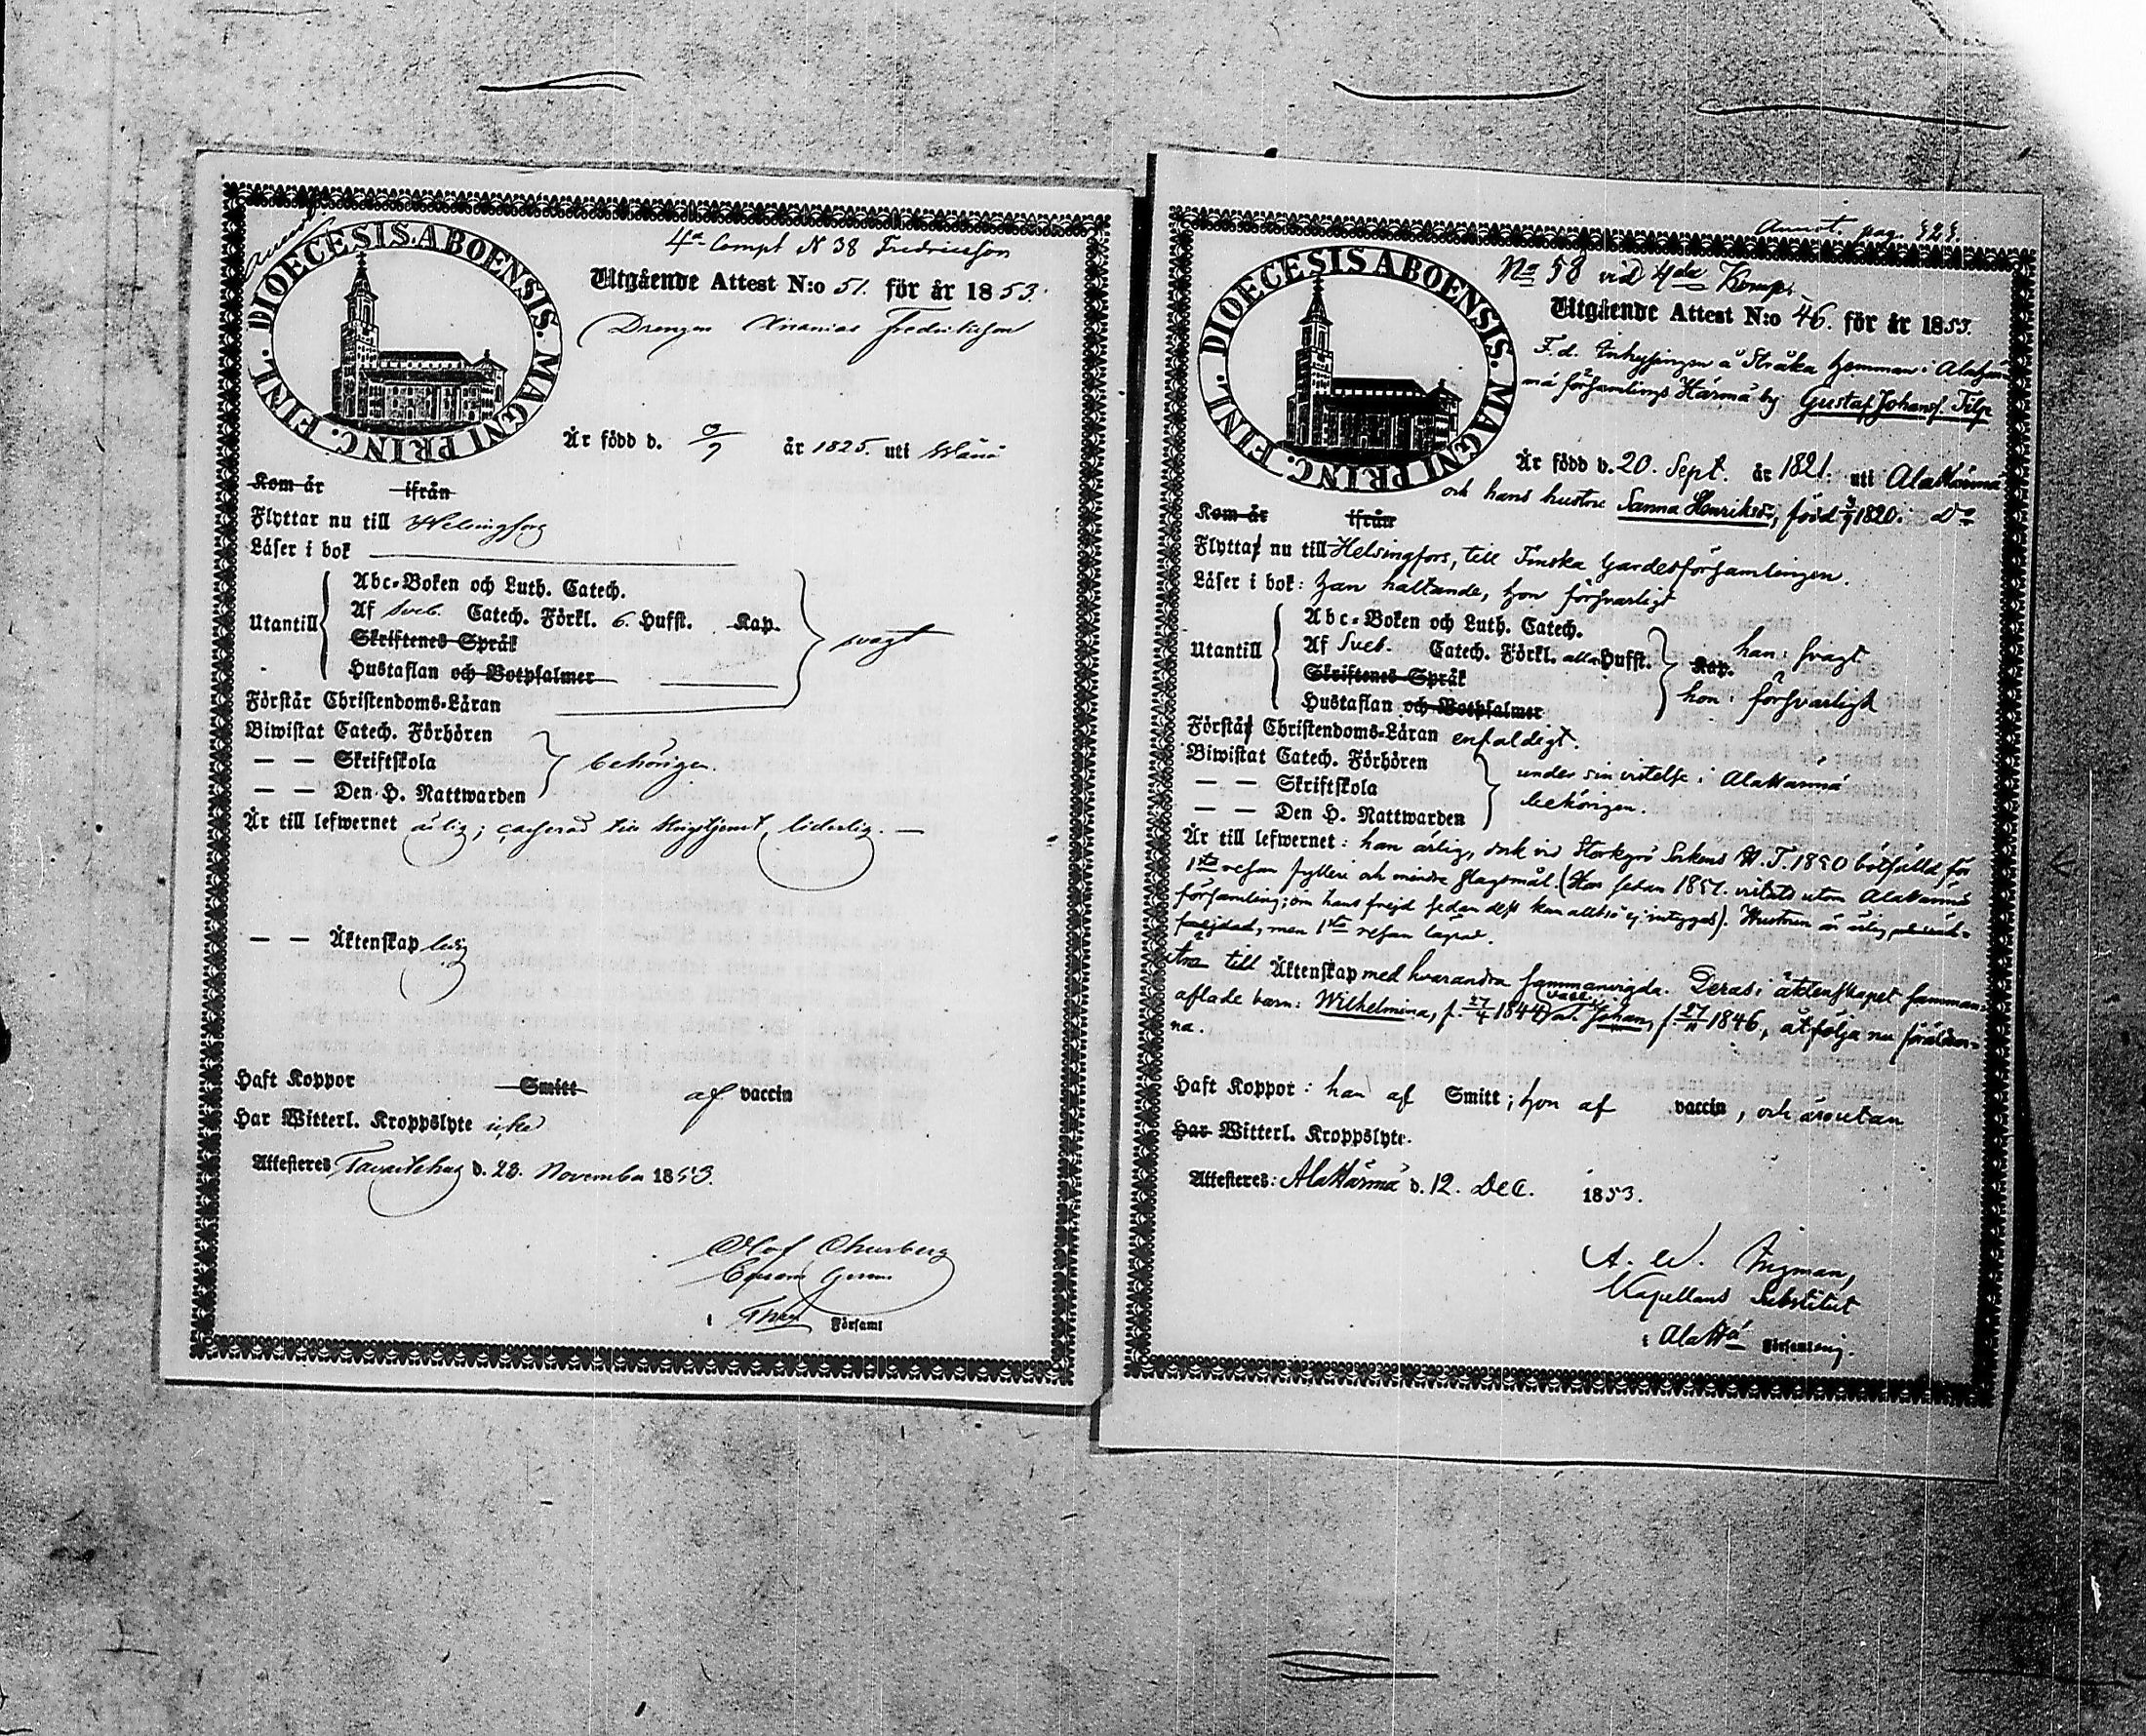 4de Compt N 38 Fredricsson
DIOECESIS ABOENSIS. MAGNI PRINC. FINL.
Utgående Attest N:o 51. för år 1853.
Drengen Ananias Fredricksson
Är född d. år 1825. uti
Kom år ifrån
Flyttar nu till Helsingfors
Läser i bok
Abc-Boken och Luth. Catech.
Utantill Af Sveb. Catech. Förkl. 6. Hufst. Kap. svagt
Skriftenes Språk
Hustaflan och Botpsalmer
Förstår Christendoms-Läran
Biwistat Catech. Förhören
— — Skriftskola behörigen.
— — Den H. Nattwarden
Är till lefwernet ärlig; till Krigstjenst, liderlig. —
— — Äktenskap ledig
Haft Koppor Smitt af vaccin
Har Witterl. Kroppslyte icke
Attesteres Tavastehus d. 23. November 1853.
Olof Churberg
i Församl
Annot. pag. 428.
No 58 vid 4de Komp.
DIOECESIS ABOENSIS. MAGNI PRINC. FINL.
Utgående Attest N:o 46. för år 1853.
F.d. Inhysingen å Stråka hemman i Alahär-
mä församlings Härmä by Gustaf Johansf. Filp
Är född d. 20. Sept. år 1821. uti Alahärmä
och hans hustru Sanna Henriksdr, född 1820. i Do
Kom år ifrån
Flytta nu till Helsingfors, till Finska Gardesförsamlingen.
Läser i bok: han haltande, hon försvarligt
Abc-Boken och Luth. Catech.
Utantill Af Sveb. Catech. Förkl. alla Hufst. Kap. han: svagt
Skriftenes Språk
Hustaflan och Botpsalmer hon: försvarligt
Förstå Christendoms-Läran enfaldigt.
Biwistat Catech. Förhören under sin vistelse i Alahärmä
— — Skriftskola
— — Den H. Nattwarden behörigen.
Är till lefwernet: han ärlig, dock vid Storkyro Sockens H.T. 1850 bötfälld för
1sta resan fylleri och mindre slagsmål. (Har sedan 1851. vistats utom Alahärmä
församling; om hans frejd sedan dess kan alltså ej intygas). Hustrun är ärlig
frejdad, men 1sta resan lägrad.
till Äktenskap med hvarandra sammanvigda. Deras i äktenskapet samman-
aflade barn: Wilhelmina, f. 27/4 1844 (vacc.) och Johan, f. 27/11 1846, åtfölja nu föräldrar-
na.
Haft Koppor: han af Smitt; hon af vaccin, och äro utan
Har Witterl. Kroppslyte.
Attesteres: Alahärmä d. 12. Dec. 1853.
A. W. Ingman,
Kapellans Substitut
i Alahä Församling.